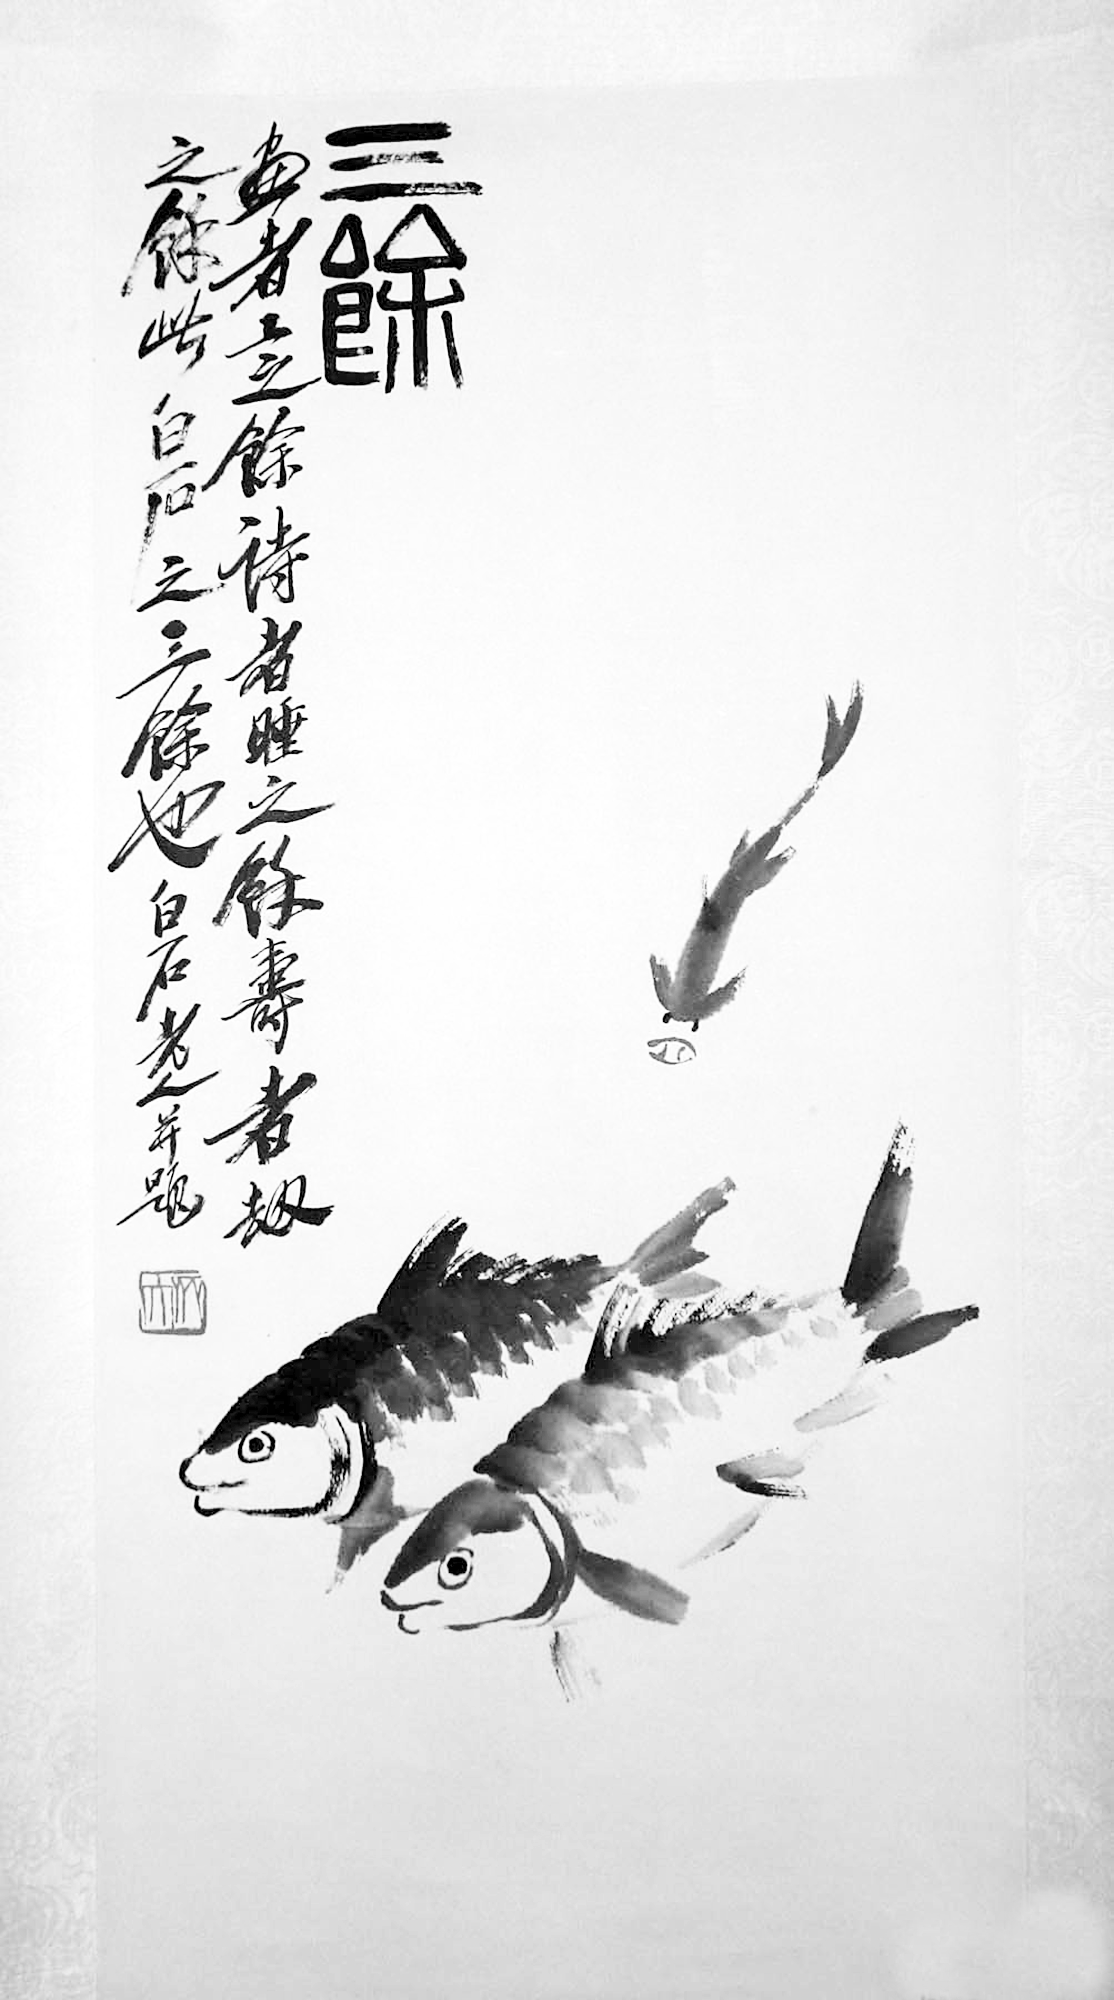 三餘
畫者工之餘詩者睡之餘壽者劫
之餘此白石之三餘也白石老人并題